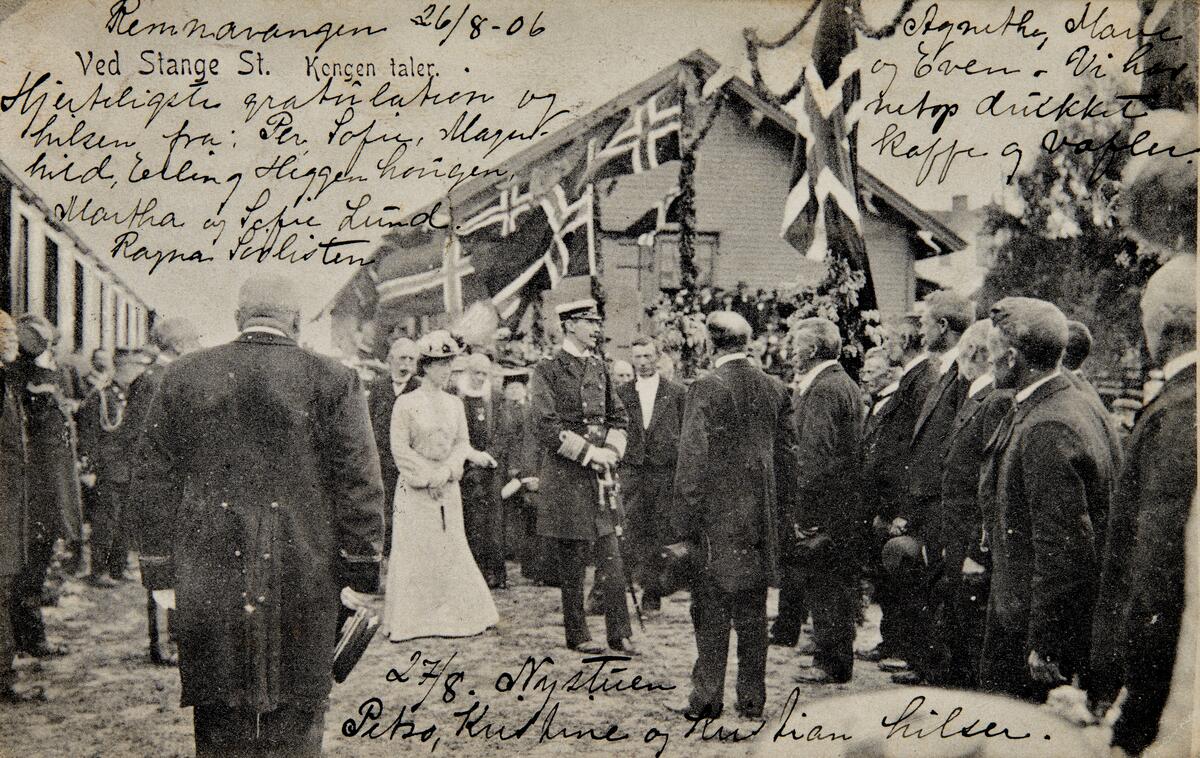 Remnavangen 26/8-06
Ved Stange St. Kongen taler.
Hjerteligste gratulation og
hilsen fra: Per, Sofie, Magn-
hild, Erling Higgenhougen,
Martha og Sofie Lund.
Ragna
Agnethe, Marie
og Even. Vi har
netop drukket
kaffe og vafler.
27/8. Nystuen
Petra, Kristine og Kristian hilser.